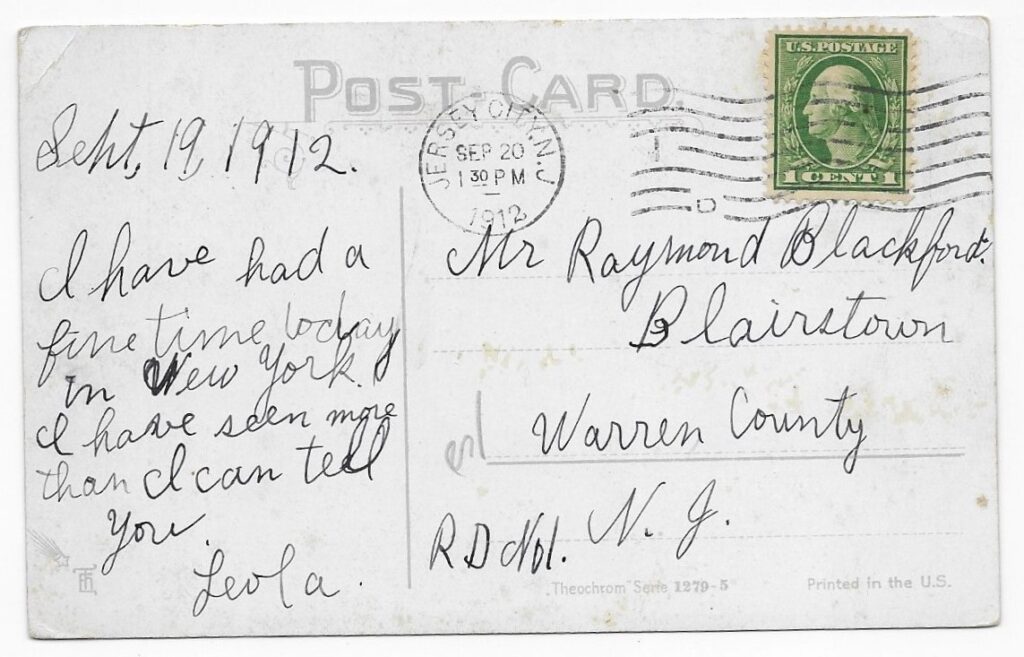 POST CARD.
U.S. POSTAGE
1 CENT 1
JERSEY CITY, N.J.
SEP 20
1 30 PM
1912
D
Sept, 19, 1912.
I have had a
fine time today
in New York.
I have seen more
than I can tell
you.
Leola.
Mr Raymond Blackford.
Blairstown
Warren County
N. J.
R D No1.
"Theochrom" Serie 1279-5
Printed in the U.S.